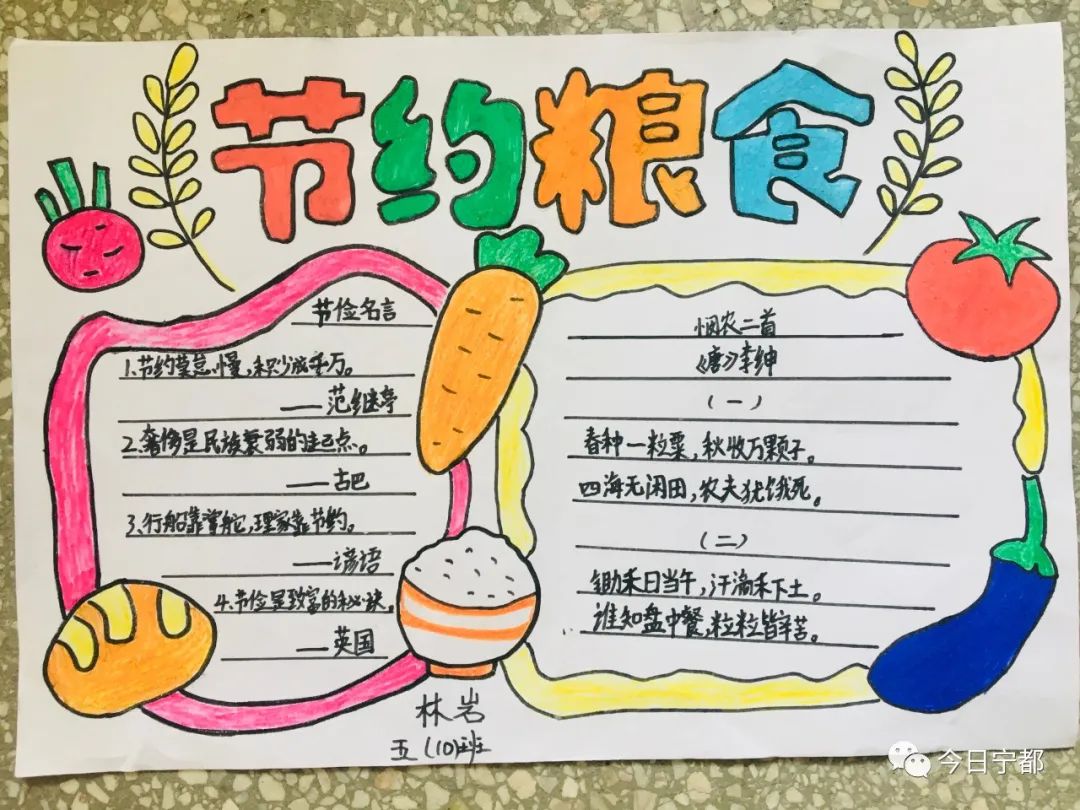 节约粮食
节俭名言
1.节约莫怠慢,积少成千万。
——范继亭
2.奢侈是民族衰弱的起点。
——古巴
3.行船靠掌舵,理家靠节约。
——谚语
4.节俭是致富的秘诀。
——英国
悯农二首
《唐》李绅
(一)
春种一粒粟,秋收万颗子。
四海无闲田,农夫犹饿死。
(二)
锄禾日当午,汗滴禾下土。
谁知盘中餐,粒粒皆辛苦。
林岩
五(10)班
今日宁都